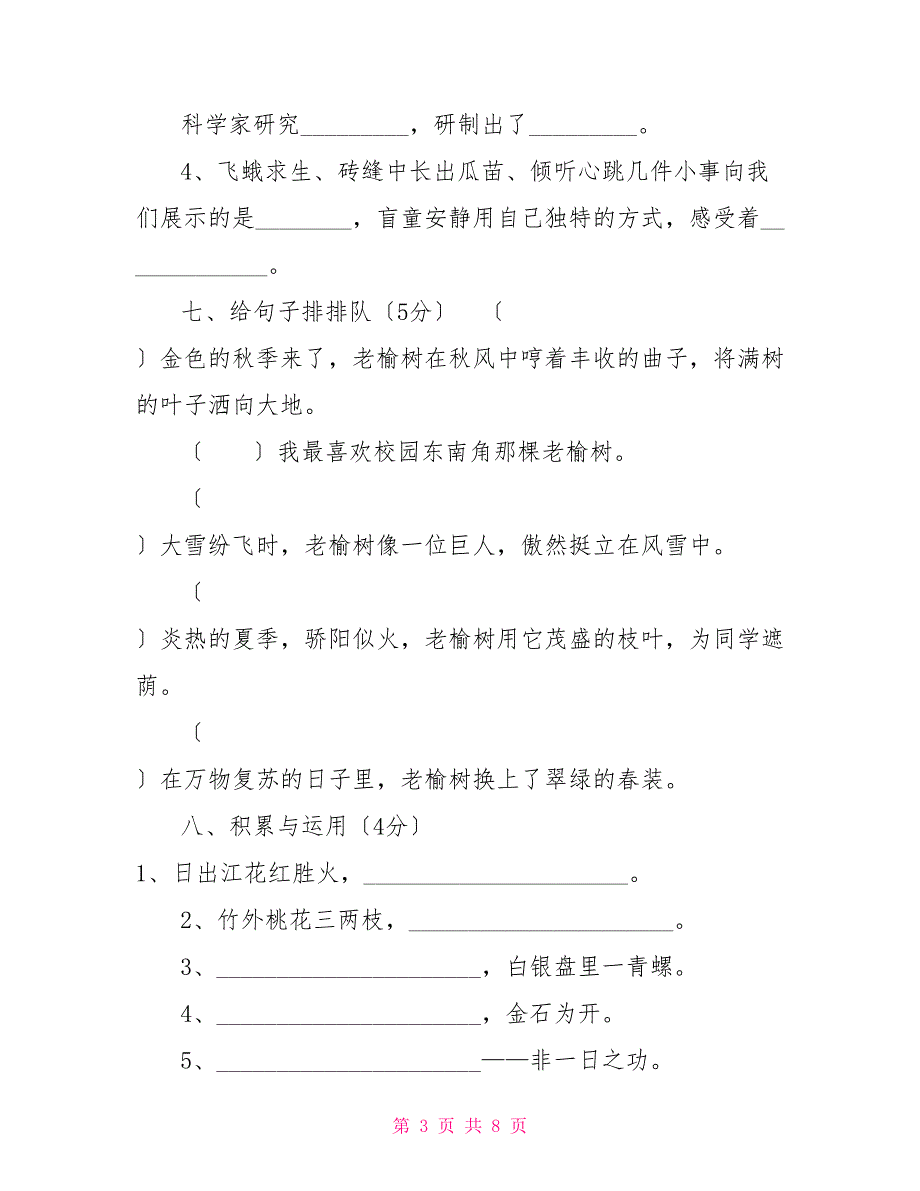 科学家研究_________，研制出了_________。
4、飞蛾求生、砖缝中长出瓜苗、倾听心跳几件小事向我
们展示的是________，盲童安静用自己独特的方式，感受着__
___________。
七、给句子排排队〔5分〕 〔
〕金色的秋季来了，老榆树在秋风中哼着丰收的曲子，将满树
的叶子洒向大地。
〔 〕我最喜欢校园东南角那棵老榆树。
〔
〕大雪纷飞时，老榆树像一位巨人，傲然挺立在风雪中。
〔
〕炎热的夏季，骄阳似火，老榆树用它茂盛的枝叶，为同学遮
荫。
〔
〕在万物复苏的日子里，老榆树换上了翠绿的春装。
八、积累与运用〔4分〕
1、日出江花红胜火，______________________。
2、竹外桃花三两枝，______________________。
3、______________________，白银盘里一青螺。
4、______________________，金石为开。
5、______________________——非一日之功。
第 3 页 共 8 页